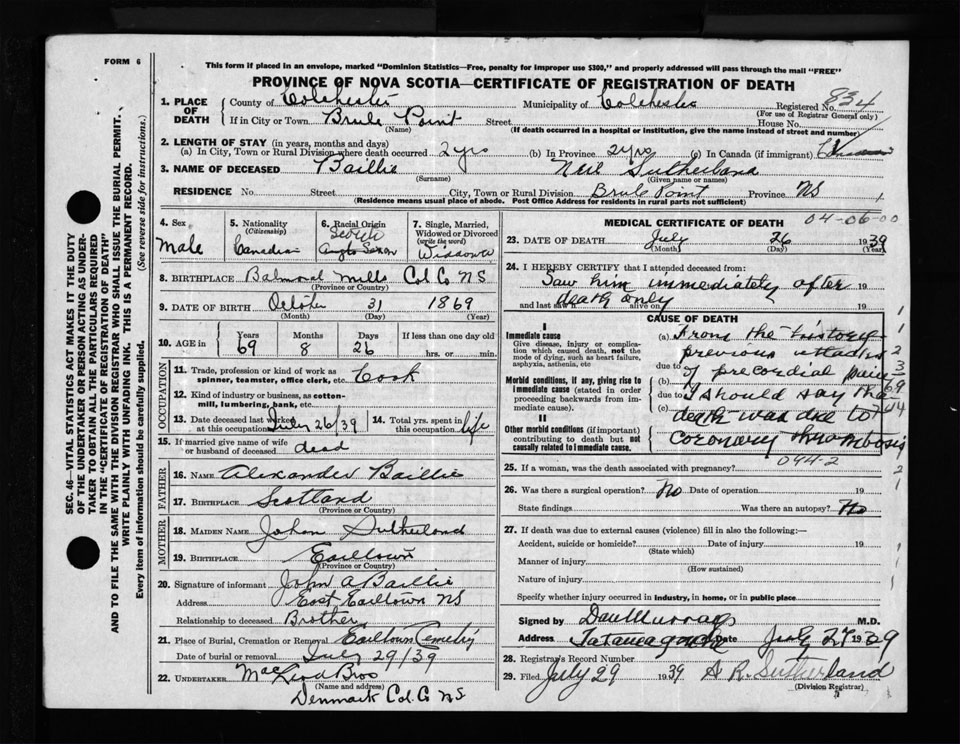 FORM 6
This form if placed in an envelope, marked "Dominion Statistics—Free, penalty for improper use $300," and properly addressed will pass through the mail "FREE"
PROVINCE OF NOVA SCOTIA—CERTIFICATE OF REGISTRATION OF DEATH
1. PLACE OF DEATH
County of Colchester Municipality of Colchester Registered No. 834
(For use of Registrar General only)
If in City or Town Brule Point Street House No.
(Name) (If death occurred in a hospital or institution, give the name instead of street and number)
2. LENGTH OF STAY (in years, months and days)
(a) In City, Town or Rural Division where death occurred 2 yrs (b) In Province 2 yrs (c) In Canada (if immigrant)
3. NAME OF DECEASED Baillie Neil Sutherland
(Surname) (Given name or names)
RESIDENCE No. Street City, Town or Rural Division Brule Point Province NS
(Residence means usual place of abode. Post Office Address for residents in rural parts not sufficient)
4. Sex
Male
5. Nationality
(Citizenship)
Canadian
6. Racial Origin
Scotch
Anglo Saxon
7. Single, Married, Widowed or Divorced
(write the word)
8. BIRTHPLACE Balmoral Mills Col Co NS
(Province or Country)
9. DATE OF BIRTH October 31 1869
(Month) (Day) (Year)
10. AGE in
Years 69
Months 8
Days 26
If less than one day old
hrs. or min.
OCCUPATION
11. Trade, profession or kind of work as spinner, teamster, office clerk, etc. Cook
12. Kind of industry or business, as cotton-mill, lumbering, bank, etc.
13. Date deceased last worked at this occupation July 26/39
14. Total yrs. spent in this occupation life
15. If married give name of wife or husband of deceased dead
FATHER
16. NAME Alexander Baillie
17. BIRTHPLACE Scotland
(Province or Country)
MOTHER
18. MAIDEN NAME Johan Sutherland
19. BIRTHPLACE Earltown
(Province or Country)
20. Signature of informant John A Baillie
Address East Earltown NS
Relationship to deceased Brother
21. Place of Burial, Cremation or Removal Earltown Cemetery
Date of burial or removal July 29/39
22. UNDERTAKER MacLeod Bros
(Name and address)
Denmark Col. Co NS
04-06-00
MEDICAL CERTIFICATE OF DEATH
23. DATE OF DEATH July 26 1939
(Month) (Day) (Year)
24. I HEREBY CERTIFY that I attended deceased from:
Saw him immediately after 19
and last saw h alive on 19
death only
CAUSE OF DEATH
I
Immediate cause
Give disease, injury or complication which caused death, not the mode of dying, such as heart failure, asphyxia, asthenia, etc
Morbid conditions, if any, giving rise to immediate cause (stated in order proceeding backwards from immediate cause).
II
Other morbid conditions (if important) contributing to death but not causally related to immediate cause.
(a) From the history
previous attacks
due to of precordial pain
(b)
due to I should say that
(c) death was due to
coronary thrombosis
094-2
25. If a woman, was the death associated with pregnancy?
26. Was there a surgical operation? No Date of operation 19
State findings Was there an autopsy? No
27. If death was due to external causes (violence) fill in also the following:—
Accident, suicide or homicide? Date of injury 19
(State which)
Manner of injury
(How sustained)
Nature of injury
Specify whether injury occurred in industry, in home, or in public place
Signed by Dan Murray M.D.
Address Tatamagouche Date July 27 1939
28. Registrar's Record Number
29. Filed July 29 1939 A R Sutherland
(Division Registrar)
SEC. 46—VITAL STATISTICS ACT MAKES IT THE DUTY
OF THE UNDERTAKER OR PERSON ACTING AS UNDER-
TAKER TO OBTAIN ALL THE PARTICULARS REQUIRED
IN THE "CERTIFICATE OF REGISTRATION OF DEATH"
AND TO FILE THE SAME WITH THE DIVISION REGISTRAR WHO SHALL ISSUE THE BURIAL PERMIT.
WRITE PLAINLY WITH UNFADING INK. THIS IS A PERMANENT RECORD.
Every item of information should be carefully supplied. (See reverse side for instructions.)